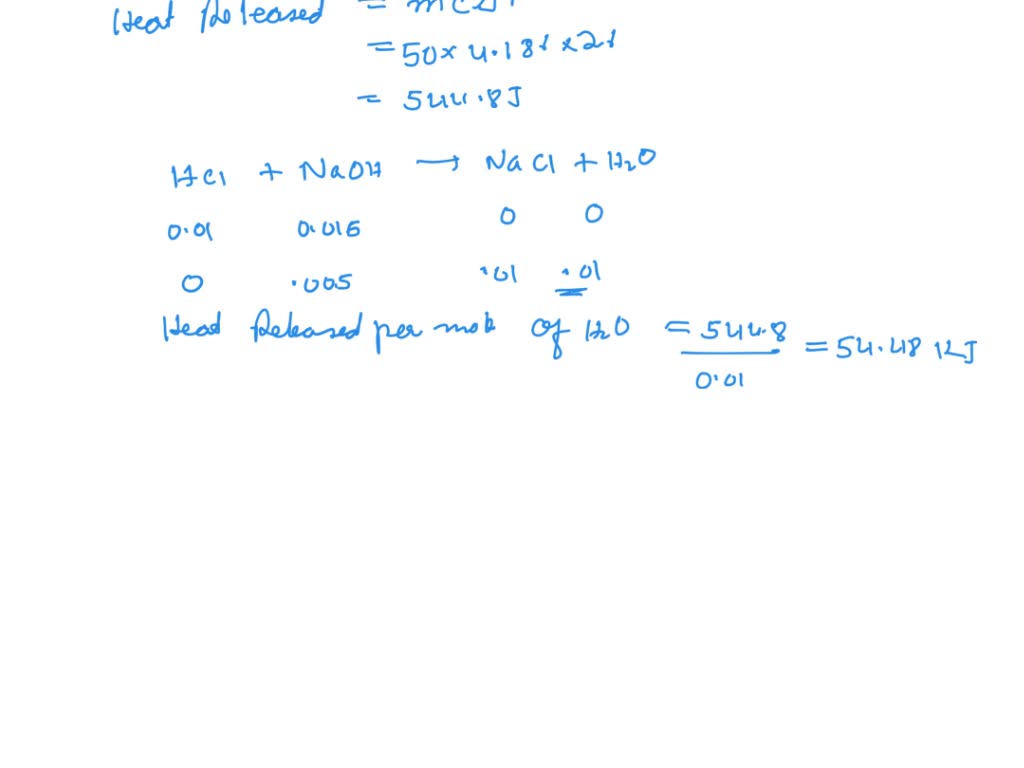 Heat Released = mcΔT
= 50 × 4.184 × 2.1
= 544.8J
HCl + NaOH → NaCl + H2O
0.01 0.015 0 0
0 .005 .01 .01
Head Released per mole of H2O = 544.8 / 0.01 = 54.48 KJ